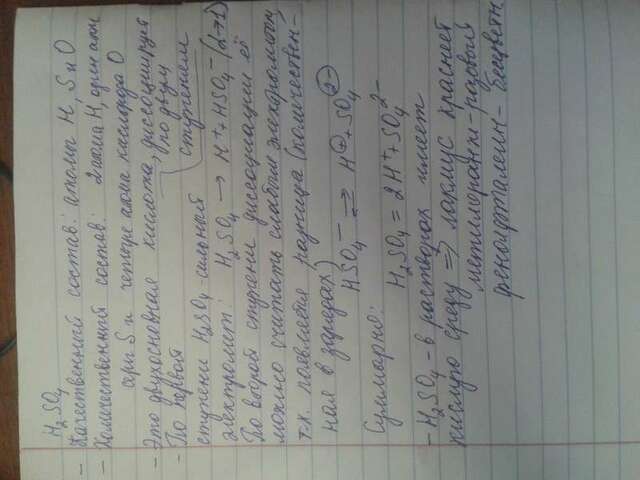 H₂SO₄
– Качественный состав: атомы H, S и O
– Количественный состав: 2 атома H, один атом
серы S и четыре атома кислорода O
– Это двухосновная кислота, диссоциирует
по двум
ступеням
– По первой
ступени H₂SO₄ - сильный
электролит: H₂SO₄ → H⁺ + HSO₄⁻ (α→1)
По второй ступени диссоциации её
можно считать слабым электролитом,
т.к. появляется разница (количествен-
ная в зарядах)
HSO₄⁻ ⇄ H⁺ + SO₄²⁻
Суммарно:
H₂SO₄ = 2H⁺ + SO₄²⁻
– H₂SO₄ - в растворах имеет
кислую среду ⇒ лакмус краснеет
метилоранж - розовый
фенолфталеин - бесцветн